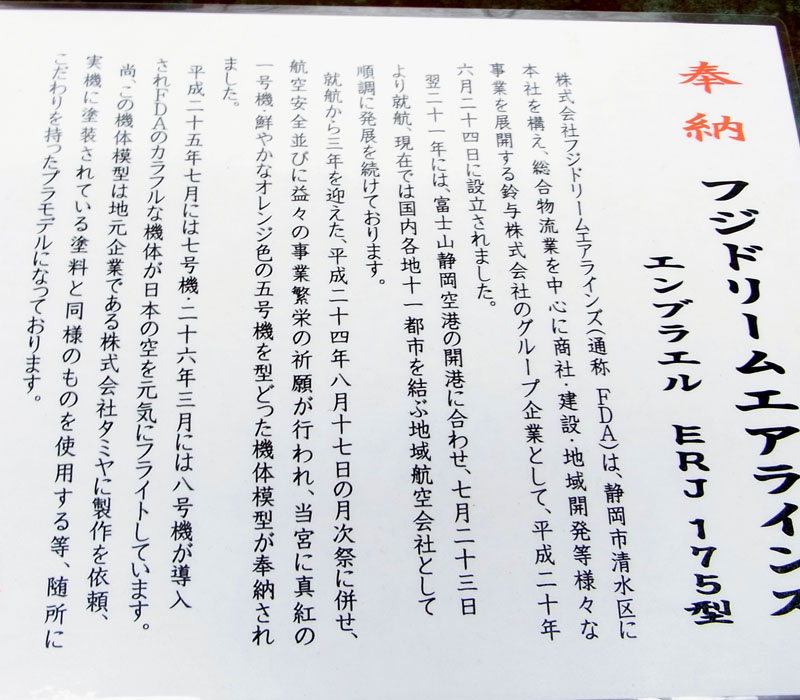 奉納
フジドリームエアラインズ
エンブラエル ERJ175型
株式会社フジドリームエアラインズ（通称 FDA）は、静岡市清水区に
本社を構え、総合物流業を中心に商社・建設・地域開発等様々な
事業を展開する鈴与株式会社のグループ企業として、平成二十年
六月二十四日に設立されました。
翌二十一年には、富士山静岡空港の開港に合わせ、七月二十三日
より就航、現在では国内各地十一都市を結ぶ地域航空会社として
順調に発展を続けております。
就航から三年を迎えた、平成二十四年八月十七日の月次祭に併せ、
航空安全並びに益々の事業繁栄の祈願が行われ、当宮に真紅の
一号機・鮮やかなオレンジ色の五号機を型どった機体模型が奉納され
ました。
平成二十五年七月には七号機・二十六年三月には八号機が導入
されFDAのカラフルな機体が日本の空を元気にフライトしています。
尚、この機体模型は地元企業である株式会社タミヤに製作を依頼、
実機に塗装されている塗料と同様のものを使用する等、随所に
こだわりを持ったプラモデルになっております。